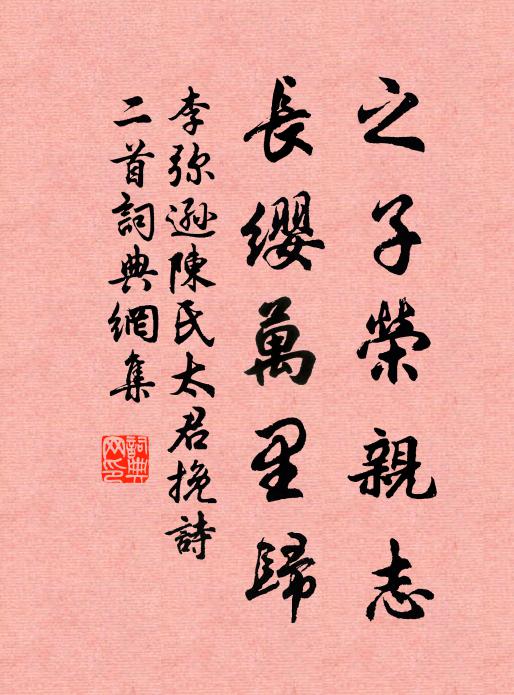 之子榮親志
長纓萬里歸
李弥遜陳氏太君挽詩
二首詞典網集
詞典網印